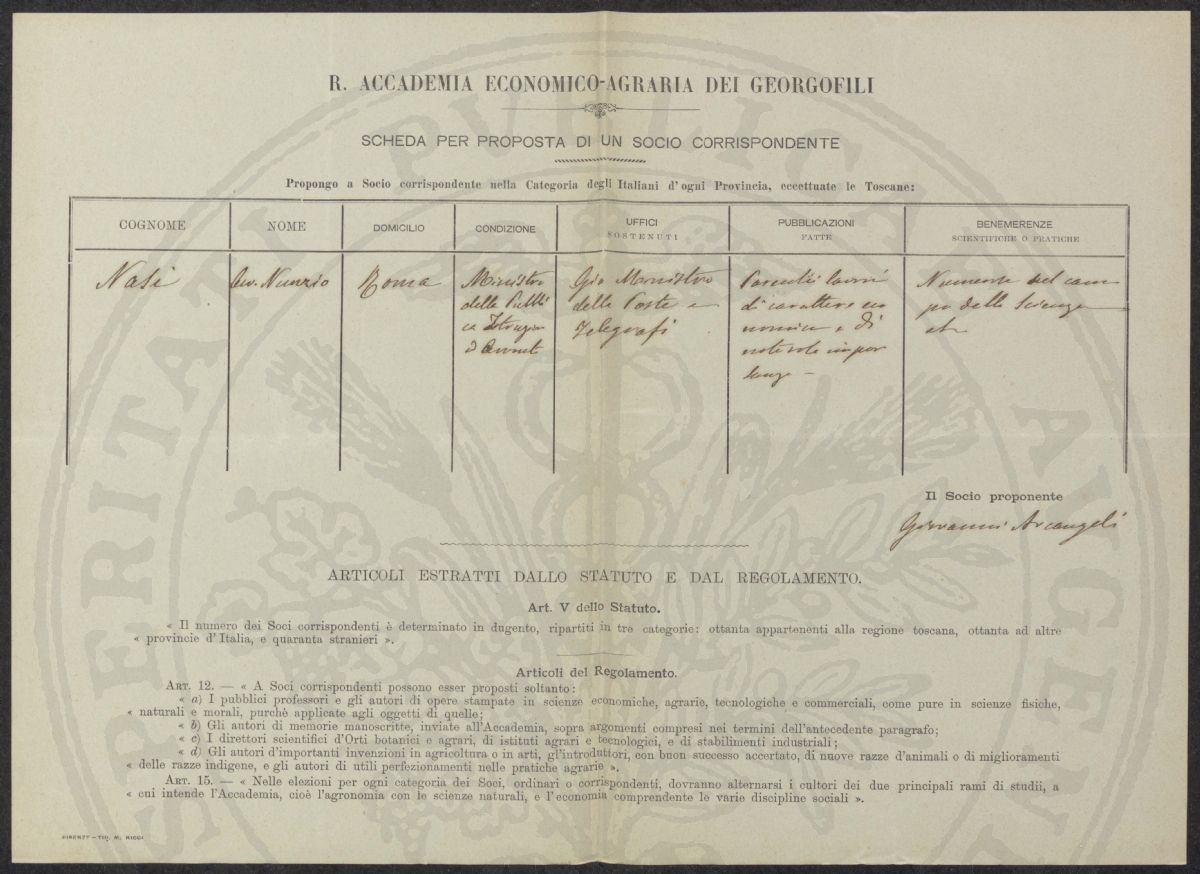 R. ACCADEMIA ECONOMICO-AGRARIA DEI GEORGOFILI
SCHEDA PER PROPOSTA DI UN SOCIO CORRISPONDENTE
Propongo a Socio corrispondente nella Categoria degli Italiani d'ogni Provincia, eccettuate le Toscane:
COGNOME
NOME
DOMICILIO
CONDIZIONE
UFFICI
SOSTENUTI
PUBBLICAZIONI
FATTE
BENEMERENZE
SCIENTIFICHE O PRATICHE
Nasi
Avv. Nunzio
Roma
Ministro
della Pubbli
ca Istruzion
Già Ministro
delle Poste e
Telegrafi
Parecchi lavori
di carattere eco
nomico e di
notevole impor
tanza –
Numerose nel cam
po delle Scienze
Il Socio proponente
Giovanni Arcangeli
ARTICOLI ESTRATTI DALLO STATUTO E DAL REGOLAMENTO.
Art. V dello Statuto.
« Il numero dei Soci corrispondenti è determinato in dugento, ripartiti in tre categorie: ottanta appartenenti alla regione toscana, ottanta ad altre
« provincie d'Italia, e quaranta stranieri ».
Articoli del Regolamento.
ART. 12. — « A Soci corrispondenti possono esser proposti soltanto:
« a) I pubblici professori e gli autori di opere stampate in scienze economiche, agrarie, tecnologiche e commerciali, come pure in scienze fisiche,
« naturali e morali, purchè applicate agli oggetti di quelle;
« b) Gli autori di memorie manoscritte, inviate all'Accademia, sopra argomenti compresi nei termini dell'antecedente paragrafo;
« c) I direttori scientifici d'Orti botanici e agrari, di istituti agrari e tecnologici, e di stabilimenti industriali;
« d) Gli autori d'importanti invenzioni in agricoltura o in arti, gl'introduttori, con buon successo accertato, di nuove razze d'animali o di miglioramenti
« delle razze indigene, e gli autori di utili perfezionamenti nelle pratiche agrarie ».
ART. 15. — « Nelle elezioni per ogni categoria dei Soci, ordinari o corrispondenti, dovranno alternarsi i cultori dei due principali rami di studii, a
« cui intende l'Accademia, cioè l'agronomia con le scienze naturali, e l'economia comprendente le varie discipline sociali ».
FIRENZE – TIP. M. RICCI